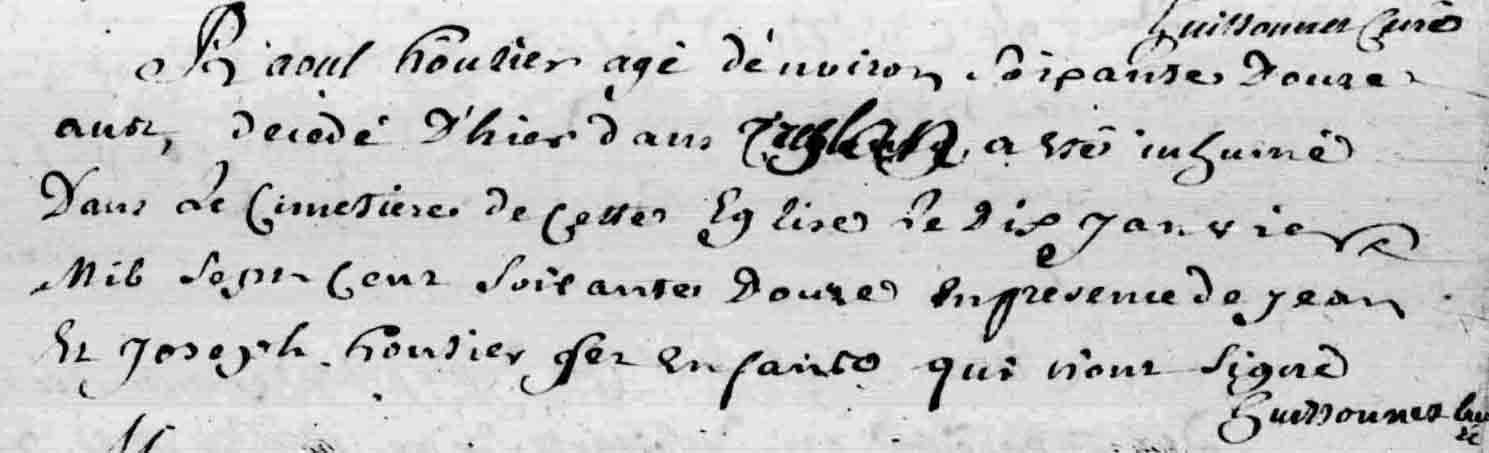 Guissonnet Curé
Raoul houtier agé d'enviro͞n soixante Douze
ans, decedé D'hier dans a eté inhumé
Dans Le Cimetiere de cette Eglise le dix Janvier
Mil sept cent soixante Douze en presence de jean
Et joseph houtier ses enfants qui n'ont signé
Guissonnet Curé